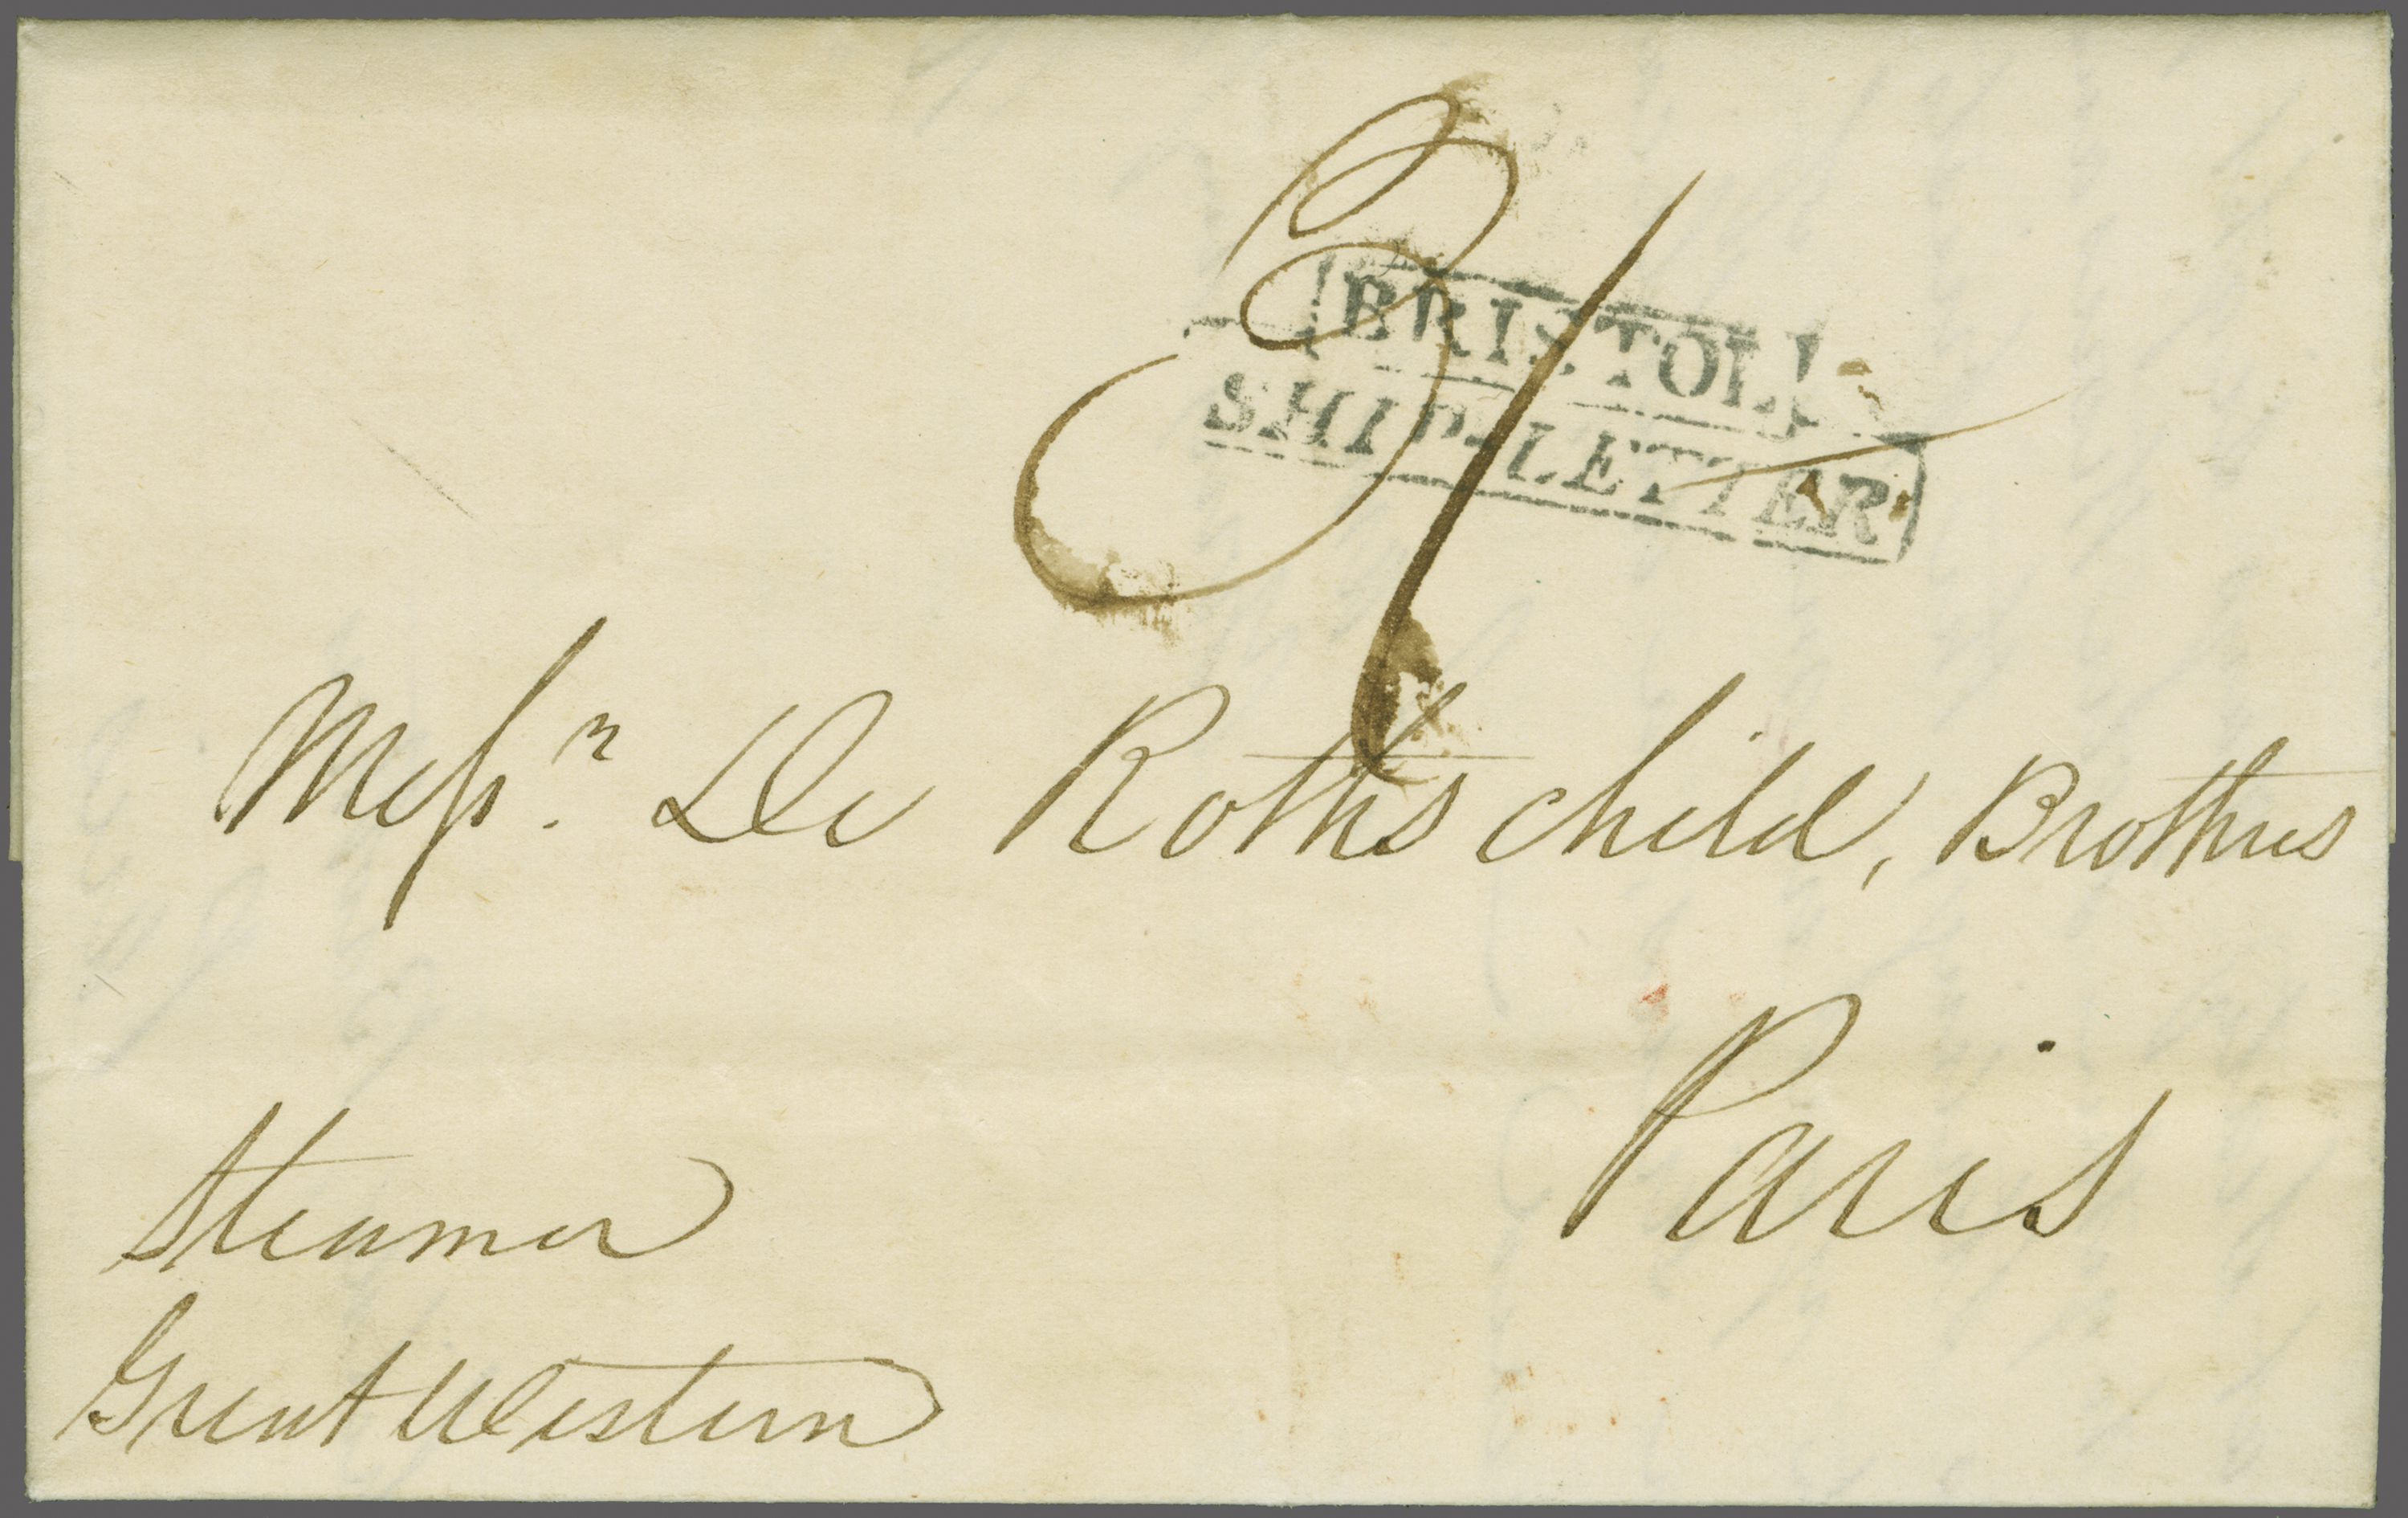 BRISTOL
SHIP-LETTER
Messrs. De Rothschild, Brothers
Paris
Steamer
Great Western